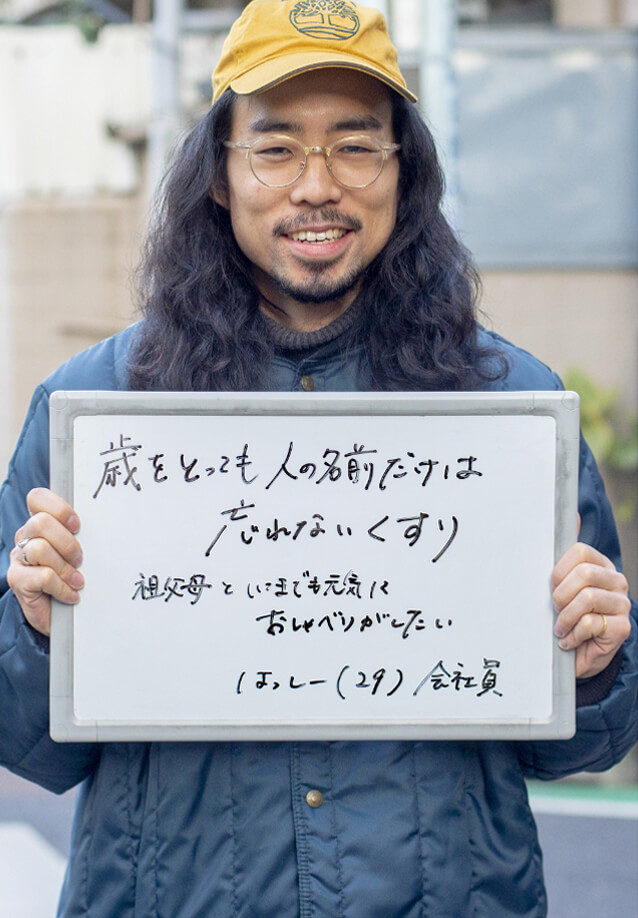 歳をとっても人の名前だけは
忘れないくすり
祖父母といつまでも元気に
おしゃべりがしたい
はっしー(29) 会社員